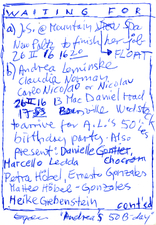 WAITING FOR
a) J.S. @ Mountain Spa
New Paltz to finish her job
26 II 16 1620 → FLOAT
b) Andrea Leminske
Claudia Norman
Carlo Nicolao or Nicolau
26 II 16 13 Mac Daniel Road
17 Bearsville Woodstock
to arrive for A.L.'s 50ies
birthday party. Also
present: Danielle Gontier,
Marcello Ledda
Petra Höbel, Ernesto Gonzales
Matteo Höbel-Gonzales
Heike Gebenstein
cont'd
"Andrea's 50 B-day"